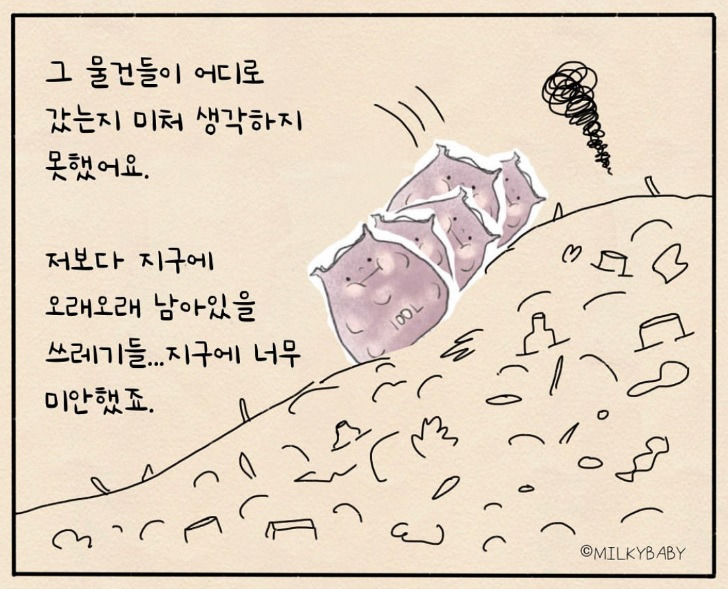 그 물건들이 어디로
갔는지 미처 생각하지
못했어요.
저보다 지구에
오래오래 남아있을
쓰레기들...지구에 너무
미안했죠.
100L
©MILKYBABY